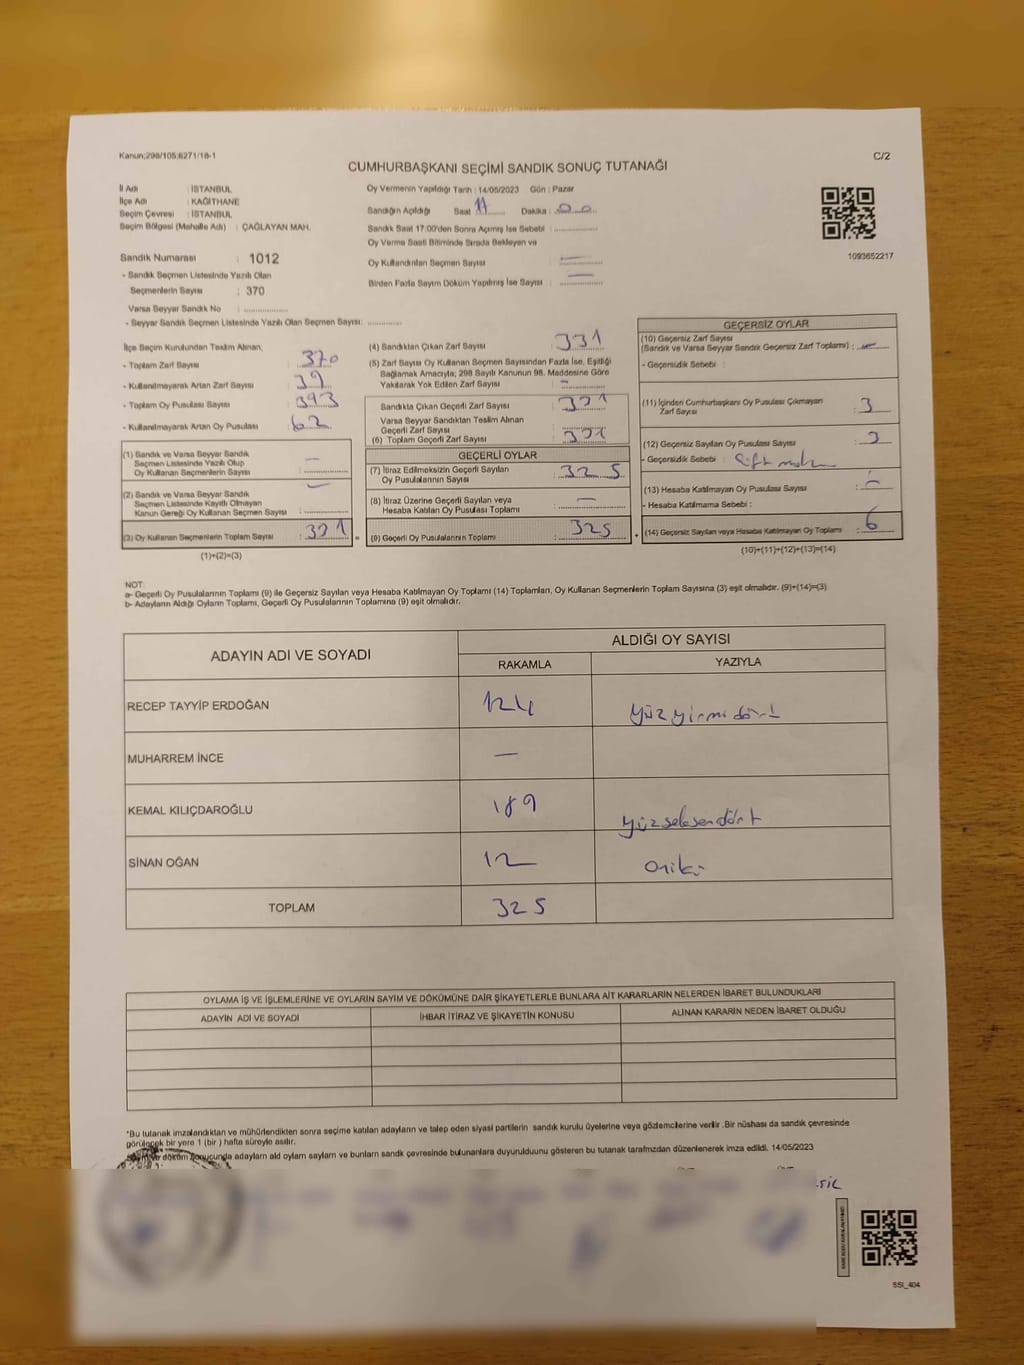 Kanun;298/105;6271/18-1
C/2
CUMHURBAŞKANI SEÇİMİ SANDIK SONUÇ TUTANAĞI
İl Adı : İSTANBUL
İlçe Adı : KAĞITHANE
Seçim Çevresi : İSTANBUL
Seçim Bölgesi (Mahalle Adı) : ÇAĞLAYAN MAH.
Oy Vermenin Yapıldığı Tarih : 14/05/2023 Gün : Pazar
Sandığın Açıldığı Saat Dakika :
Sandık Saat 17.00'den Sonra Açılmış İse Sebebi :
Oy Verme Saati Bitiminde Sırada Bekleyen ve
Oy Kullandırılan Seçmen Sayısı
Birden Fazla Sayım Döküm Yapılmış İse Sayısı
1093652217
Sandık Numarası : 1012
- Sandık Seçmen Listesinde Yazılı Olan
Seçmenlerin Sayısı : 370
Varsa Seyyar Sandık No :
- Seyyar Sandık Seçmen Listesinde Yazılı Olan Seçmen Sayısı:
İlçe Seçim Kurulundan Teslim Alınan;
- Toplam Zarf Sayısı : 370
- Kullanılmayarak Artan Zarf Sayısı : 39
- Toplam Oy Pusulası Sayısı : 393
- Kullanılmayarak Artan Oy Pusulası : 62
(1) Sandık ve Varsa Seyyar Sandık
Seçmen Listesinde Yazılı Olup
Oy Kullanan Seçmenlerin Sayısı : —
(2) Sandık ve Varsa Seyyar Sandık
Seçmen Listesinde Kayıtlı Olmayan
Kanun Gereği Oy Kullanan Seçmen Sayısı : —
(3) Oy Kullanan Seçmenlerin Toplam Sayısı : 331 =
(1)+(2)=(3)
(4) Sandıktan Çıkan Zarf Sayısı : 331
(5) Zarf Sayısı Oy Kullanan Seçmen Sayısından Fazla İse, Eşitliği
Sağlamak Amacıyla; 298 Sayılı Kanunun 98. Maddesine Göre
Yakılarak Yok Edilen Zarf Sayısı : —
Sandıkta Çıkan Geçerli Zarf Sayısı : 331
Varsa Seyyar Sandıktan Teslim Alınan
Geçerli Zarf Sayısı
(6) Toplam Geçerli Zarf Sayısı : 331
GEÇERLİ OYLAR
(7) İtiraz Edilmeksizin Geçerli Sayılan
Oy Pusulalarının Sayısı : 325
(8) İtiraz Üzerine Geçerli Sayılan veya
Hesaba Katılan Oy Pusulası Toplamı : —
(9) Geçerli Oy Pusulalarının Toplamı : 325 +
GEÇERSİZ OYLAR
(10) Geçersiz Zarf Sayısı
(Sandık ve Varsa Seyyar Sandık Geçersiz Zarf Toplamı) : —
- Geçersizlik Sebebi :
(11) İçinden Cumhurbaşkanı Oy Pusulası Çıkmayan
Zarf Sayısı : 3
(12) Geçersiz Sayılan Oy Pusulası Sayısı : 3
- Geçersizlik Sebebi :
(13) Hesaba Katılmayan Oy Pusulası Sayısı : —
- Hesaba Katılmama Sebebi :
(14) Geçersiz Sayılan veya Hesaba Katılmayan Oy Toplamı : 6
(10)+(11)+(12)+(13)=(14)
NOT:
a- Geçerli Oy Pusulalarının Toplamı (9) ile Geçersiz Sayılan veya Hesaba Katılmayan Oy Toplamı (14) Toplamları, Oy Kullanan Seçmenlerin Toplam Sayısına (3) eşit olmalıdır. (9)+(14)=(3)
b- Adayların Aldığı Oyların Toplamı, Geçerli Oy Pusulalarının Toplamına (9) eşit olmalıdır.
ADAYIN ADI VE SOYADI
ALDIĞI OY SAYISI
RAKAMLA YAZIYLA
RECEP TAYYİP ERDOĞAN 124 yüz yirmi dört
MUHARREM İNCE —
KEMAL KILIÇDAROĞLU 189
SİNAN OĞAN 12 Oniki
TOPLAM 325
OYLAMA İŞ VE İŞLEMLERİNE VE OYLARIN SAYIM VE DÖKÜMÜNE DAİR ŞİKAYETLERLE BUNLARA AİT KARARLARIN NELERDEN İBARET BULUNDUKLARI
ADAYIN ADI VE SOYADI İHBAR İTİRAZ VE ŞİKAYETİN KONUSU ALINAN KARARIN NEDEN İBARET OLDUĞU
*Bu tutanak imzalandıktan ve mühürlendikten sonra seçime katılan adayların ve talep eden siyasi partilerin sandık kurulu üyelerine veya gözlemcilerine verilir. Bir nüshası da sandık çevresinde
görülecek bir yere 1 (bir ) hafta süreyle asılır.
döküm sonucunda adayların ald oyların sayıları ve bunların sandık çevresinde bulunanlara duyurulduunu gösteren bu tutanak tarafımzdan düzenlenerek imza edildi. 14/05/2023
SSI_404